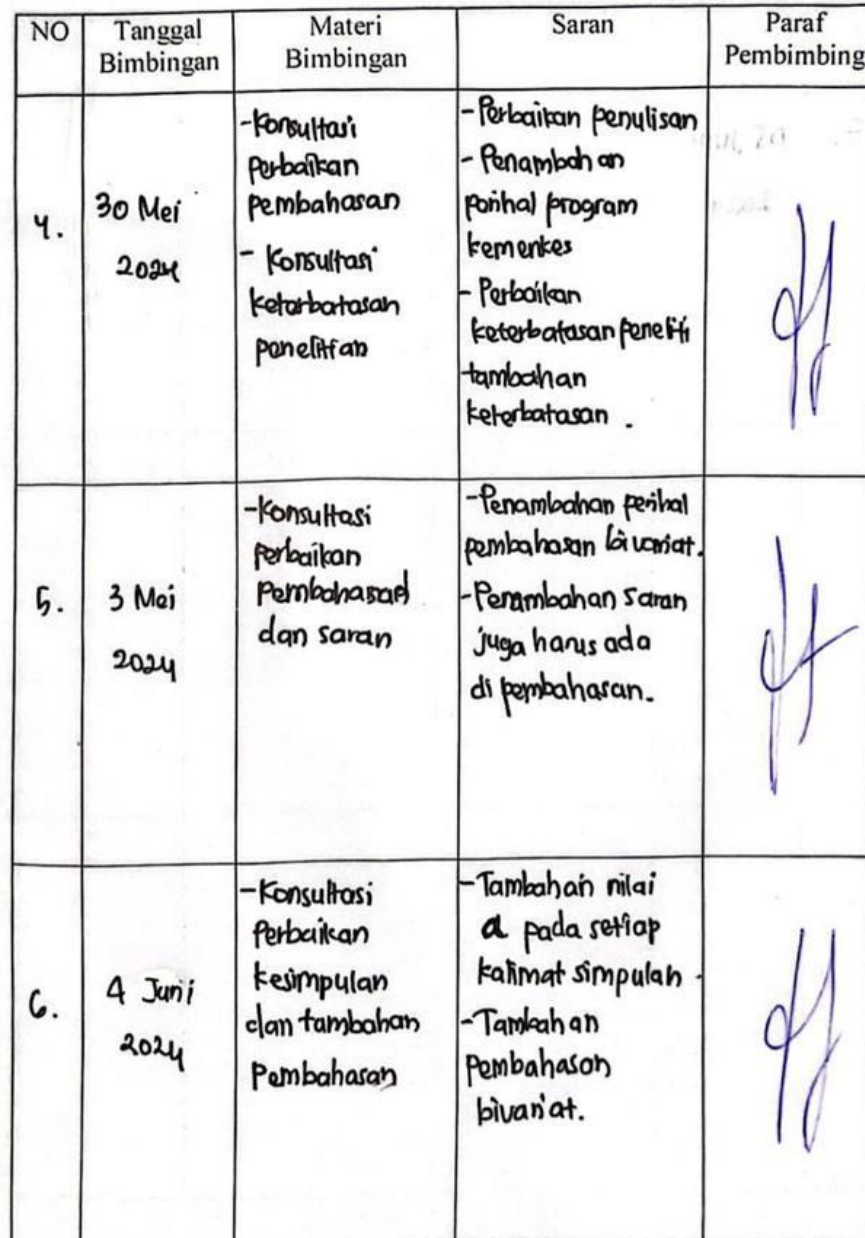 NO
Tanggal
Bimbingan
Materi
Bimbingan
Saran
Paraf
Pembimbing
4.
30 Mei
2024
-Konsultasi
perbaikan
pembahasan
- Konsultasi
keterbatasan
penelitian
- Perbaikan penulisan
- Penambahan
perihal program
kemenkes
- Perbaikan
keterbatasan peneliti
tambahan
keterbatasan .
5.
3 Mei
2024
-Konsultasi
perbaikan
Pembahasan
dan saran
-Penambahan perihal
pembahasan bivariat.
-Penambahan saran
juga harus ada
di pembahasan.
6.
4 Juni
2024
-Konsultasi
Perbaikan
kesimpulan
dan tambahan
Pembahasan
-Tambahan nilai
α pada setiap
kalimat simpulan
-Tambahan
Pembahasan
bivariat.